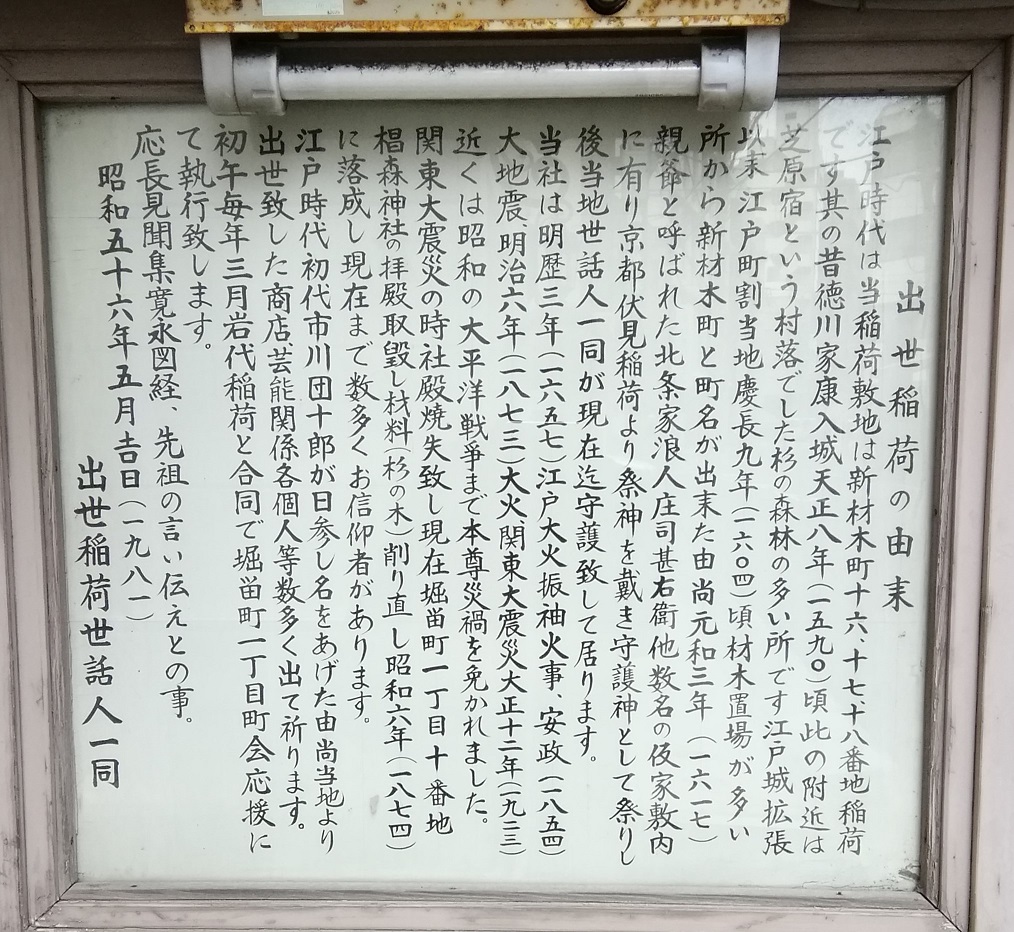 出世稲荷の由末
江戸時代は当稲荷敷地は新材木町十六、十七、十八番地稲荷
です其の昔徳川家康入城天正八年(一五九〇)頃此の附近は
芝原宿という村落でした杉の森林の多い所です江戸城拡張
以末江戸町割当地慶長九年(一六〇四)頃材木置場が多い
所から新材木町と町名が出末た由尚元和三年(一六一七)
親爺と呼ばれた北条家浪人庄司甚右衛他数名の仮家敷内
に有り京都伏見稲荷より祭神を戴き守護神として祭りし
後当地世話人一同が現在迄守護致して居ります。
当社は明歴三年(一六五七)江戸大火振袖火事、安政(一八五四)
大地震、明治六年(一八七三)大火、関東大震災大正十二年(一九二三)
近くは昭和の大平洋戦爭まで本尊災禍を免かれました。
関東大震災の時社殿焼失致し現在堀留町一丁目十番地
椙森神社の拝殿取毀し材料(杉の木)削り直し昭和六年(一八七四)
に落成し現在まで数多くお信仰者があります。
江戸時代初代市川団十郎が日参し名をあげた由尚当地より
出世致した商店芸能関係各個人等数多く出て祈ります。
初午毎年三月岩代稲荷と合同で堀留町一丁目町会応援に
て執行致します。
応長見聞集寛永図経、先祖の言い伝えとの事。
昭和五十六年五月吉日(一九八一)
出世稲荷世話人一同